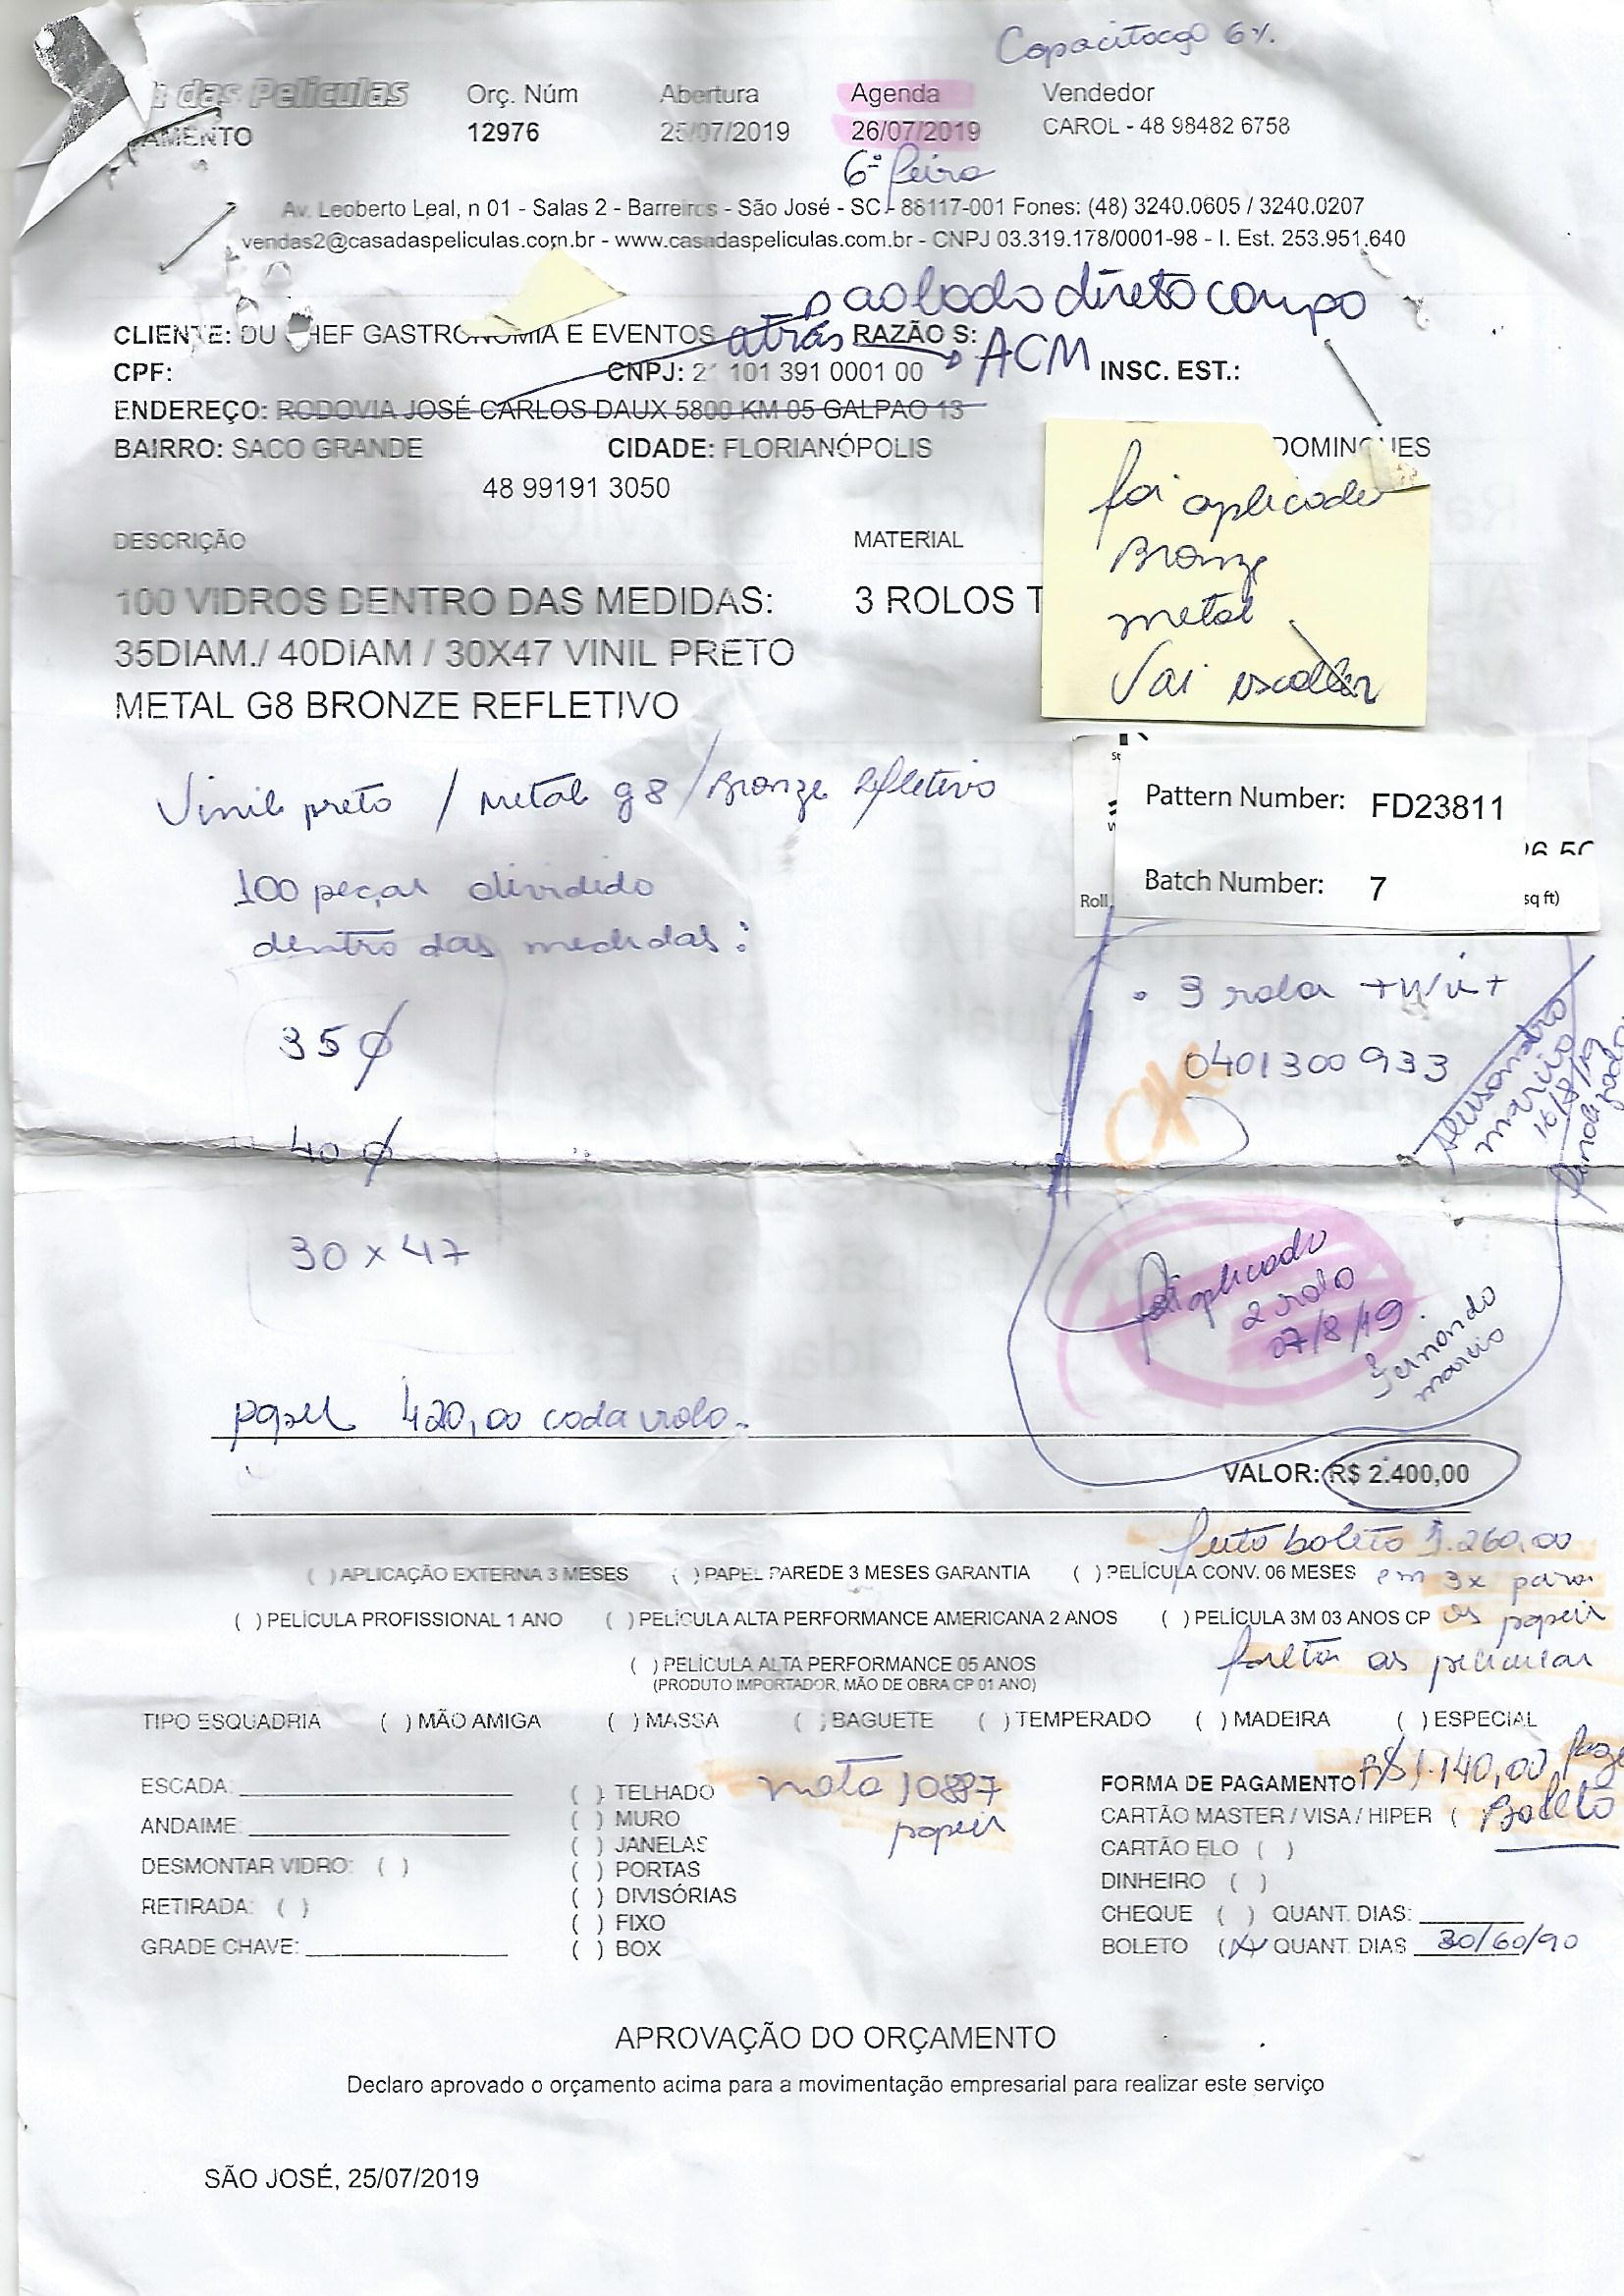 Capacitação 6%.
das Películas Orç. Núm Abertura Agenda Vendedor
AMENTO 12976 25/07/2019 26/07/2019 CAROL - 48 98482 6758
6ª feira
Av. Leoberto Leal, n 01 - Salas 2 - Barreiros - São José - SC - 88117-001 Fones: (48) 3240.0605 / 3240.0207
vendas2@casadaspeliculas.com.br - www.casadaspeliculas.com.br - CNPJ 03.319.178/0001-98 - I. Est. 253.951.640
ao lado direto campo
CLIENTE: DU HEF GASTRONOMIA E EVENTOS atrás RAZÃO S:
CPF: CNPJ: 2 101 391 0001 00 ACM INSC. EST.:
ENDEREÇO: RODOVIA JOSÉ CARLOS DAUX 5800 KM 05 GALPAO 13
BAIRRO: SACO GRANDE CIDADE: FLORIANÓPOLIS DOMINGUES
48 99191 3050
foi aplicado
Bronze
metal
Vai escolher
DESCRIÇÃO MATERIAL
100 VIDROS DENTRO DAS MEDIDAS: 3 ROLOS T
35DIAM./ 40DIAM / 30X47 VINIL PRETO
METAL G8 BRONZE REFLETIVO
Vinil preto / Metal g8 / Bronze Refletivo
Pattern Number: FD23811
Batch Number: 7
Roll sq ft)
100 peças dividido
dentro das medidas:
35 ø
40 ø
30 x 47
3 rolos
0401300933
OK
marcio
16/8/19
aplicado
2 rolo
07/8/19
Fernando
marcio
papel 420,00 cada rolo.
VALOR: R$ 2.400,00
feito boleto 1.260,00
em 3x para
os papeis
falta as peliculas
( ) APLICAÇÃO EXTERNA 3 MESES ( ) PAPEL PAREDE 3 MESES GARANTIA ( ) PELÍCULA CONV. 06 MESES
( ) PELÍCULA PROFISSIONAL 1 ANO ( ) PELÍCULA ALTA PERFORMANCE AMERICANA 2 ANOS ( ) PELÍCULA 3M 03 ANOS CP
( ) PELÍCULA ALTA PERFORMANCE 05 ANOS
(PRODUTO IMPORTADOR, MÃO DE OBRA CP 01 ANO)
TIPO ESQUADRIA ( ) MÃO AMIGA ( ) MASSA ( ) BAGUETE ( ) TEMPERADO ( ) MADEIRA ( ) ESPECIAL
ESCADA:
ANDAIME:
DESMONTAR VIDRO: ( )
RETIRADA: ( )
GRADE CHAVE:
( ) TELHADO
( ) MURO
( ) JANELAS
( ) PORTAS
( ) DIVISÓRIAS
( ) FIXO
( ) BOX
nota 10887
papeis
FORMA DE PAGAMENTO R$ 1.140,00
CARTÃO MASTER / VISA / HIPER ( Boleto
CARTÃO ELO ( )
DINHEIRO ( )
CHEQUE ( ) QUANT. DIAS:
BOLETO (X) QUANT. DIAS 30/60/90
APROVAÇÃO DO ORÇAMENTO
Declaro aprovado o orçamento acima para a movimentação empresarial para realizar este serviço
SÃO JOSÉ, 25/07/2019